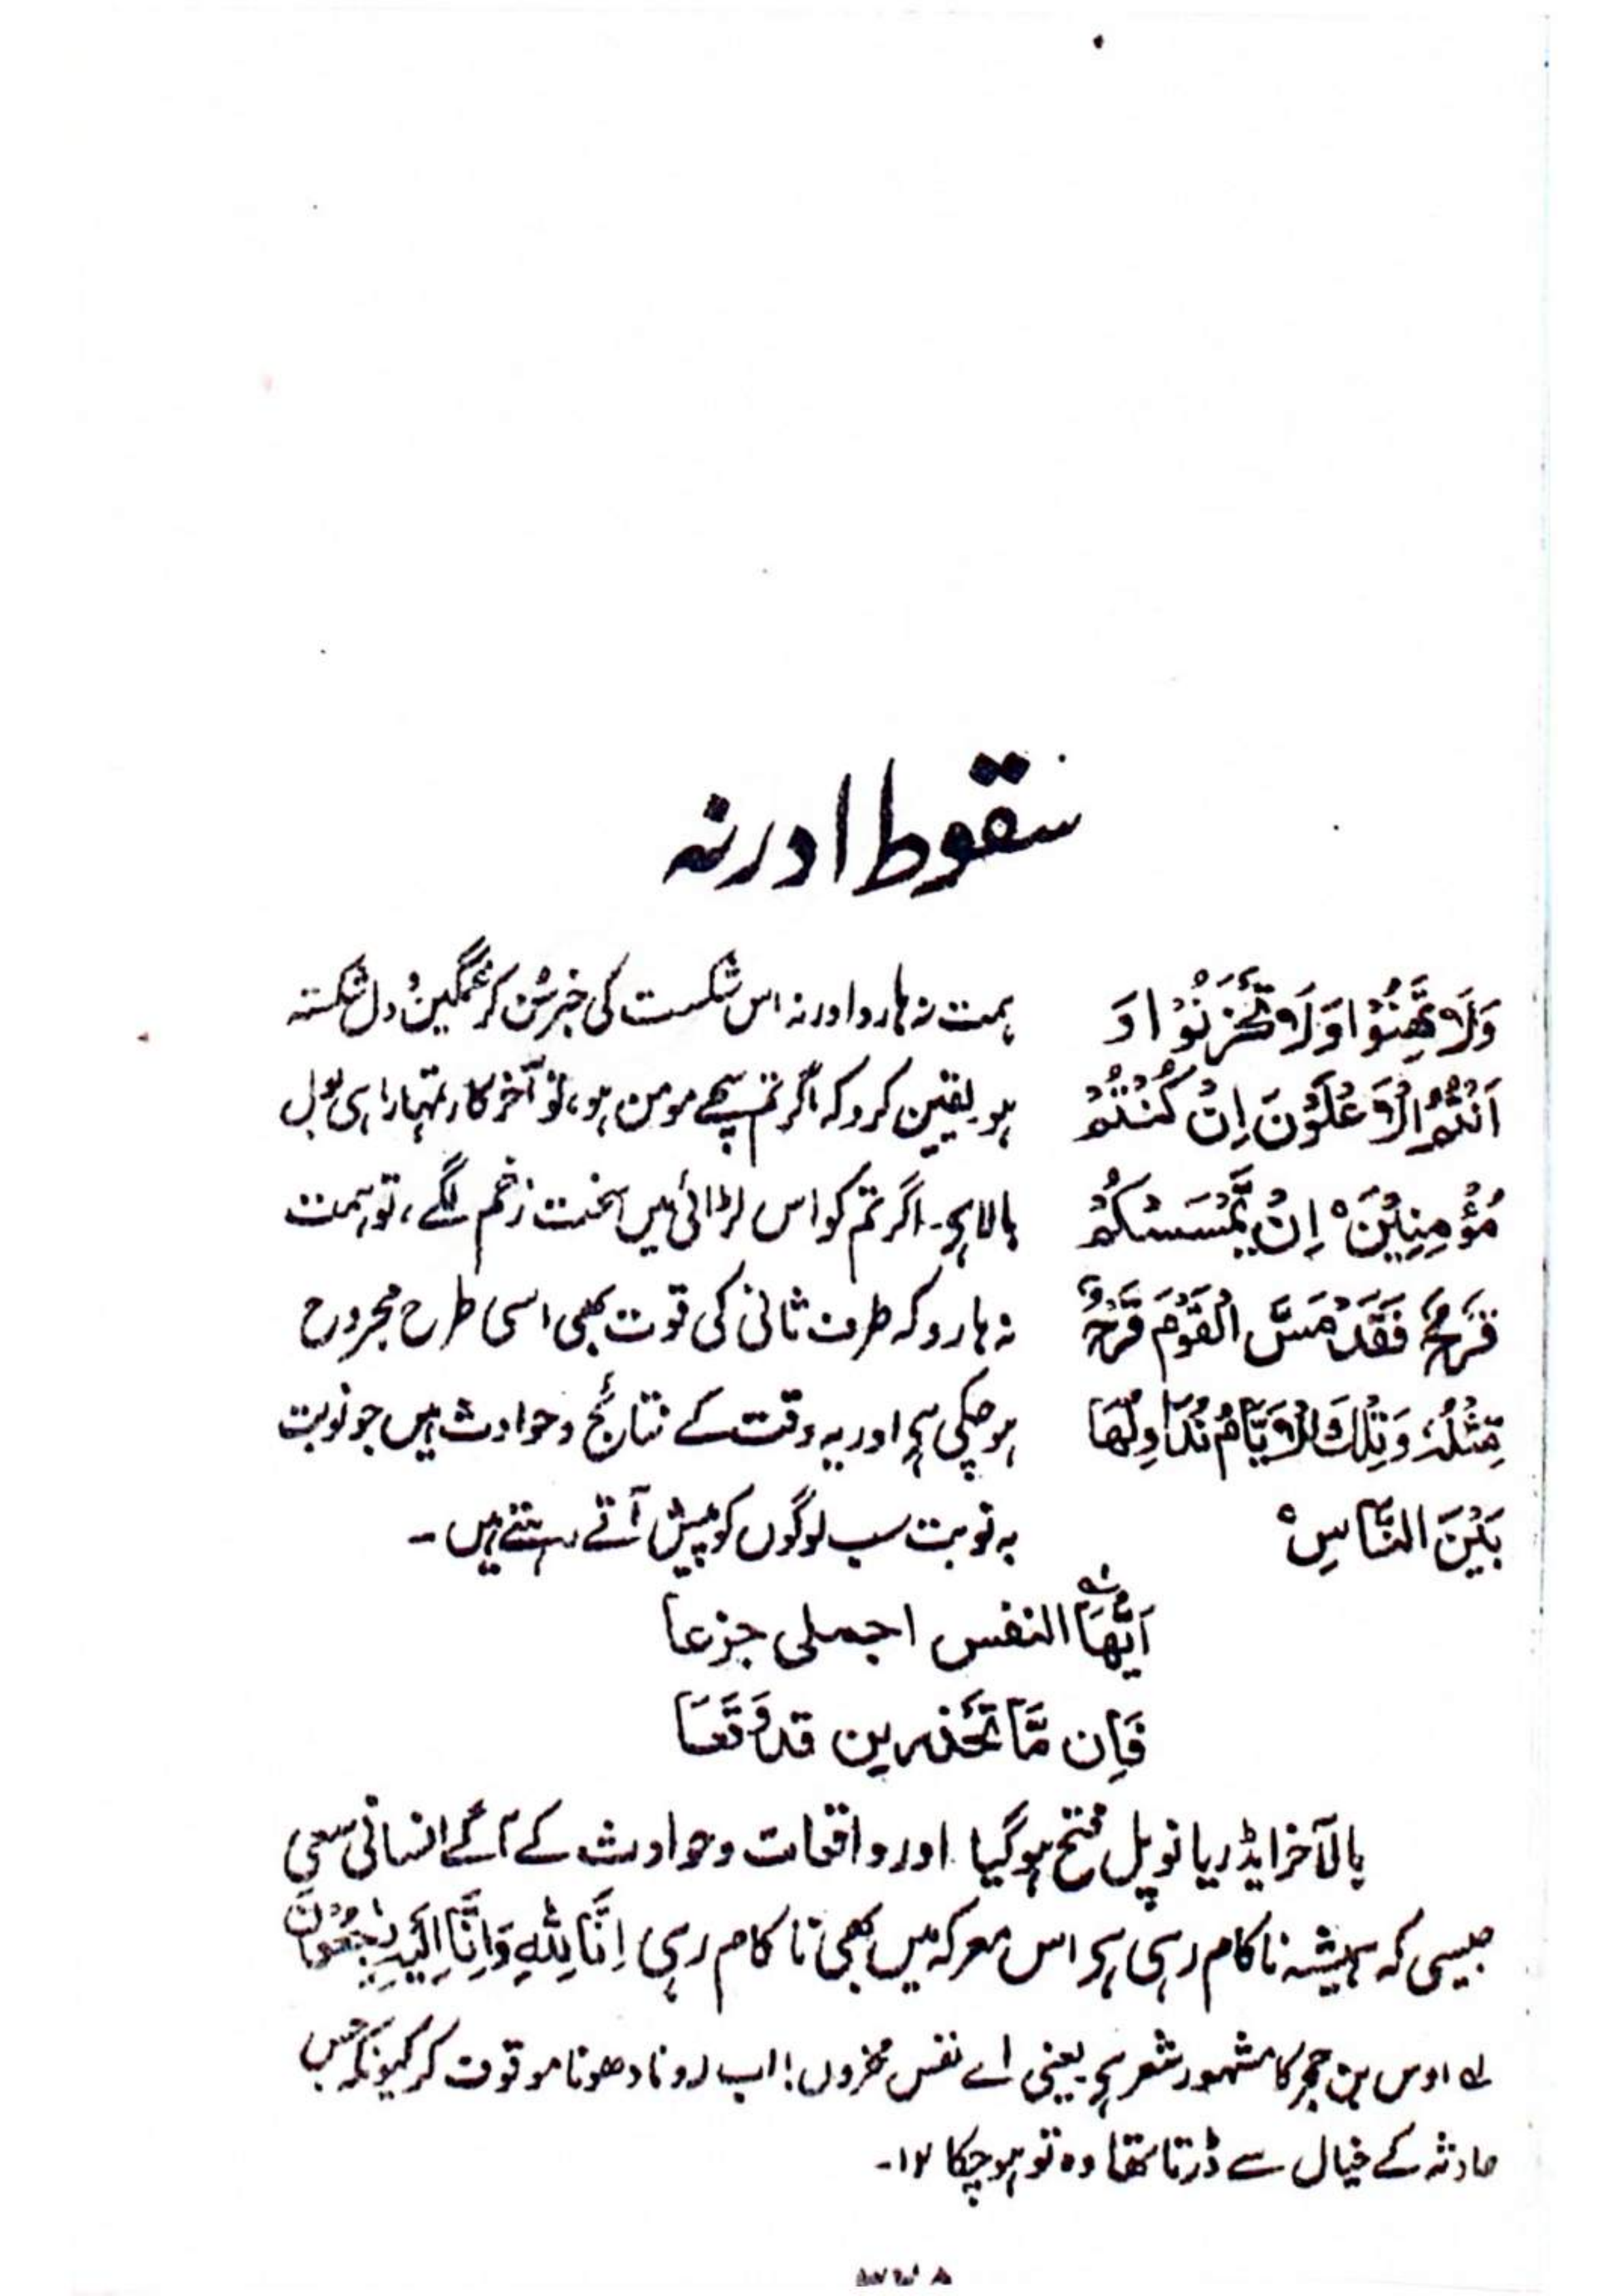 سقوط ادرنہ
وَلَا تَهِنُوْا وَلَا تَحْزَنُوْا وَ
اَنْتُمُ الْاَعْلَوْنَ اِنْ كُنْتُمْ
مُؤْمِنِيْنَ ه اِنْ يَّمْسَسْكُمْ
قَرْحٌ فَقَدْ مَسَّ الْقَوْمَ قَرْحٌ
مِّثْلُهٗ وَتِلْكَ الْاَيَّامُ نُدَاوِلُهَا
بَيْنَ النَّاسِ ه
ہمت نہ ہارو اور نہ اس شکست کی خبر سُن کر غمگین و دل شکستہ
ہو یقین کرو کہ اگر تم سچے مومن ہو، تو آخر کار تمہارا ہی بول
بالا ہے۔ اگر تم کو اس لڑائی میں سخت زخم لگے، تو ہمت
نہ ہارو کہ طرف ثانی کی قوت بھی اسی طرح مجروح
ہو چکی ہے اور یہ وقت کے نتائج و حوادث ہیں جو نوبت
بہ نوبت سب لوگوں کو پیش آتے رہتے ہیں۔
اَيَّتُهَا النفس اجملى جزعا
فَاِن مَّا تَحْذرين قد وَقَعَا
بالآخر ایڈریا نوپل فتح ہو گیا اور واقعات و حوادث کے آگے انسانی سعی
جیسی کہ ہمیشہ ناکام رہی ہے اس معرکہ میں بھی ناکام رہی اِنَّا لِلّٰهِ وَاِنَّا اِلَيْهِ رٰجِعُوْنَ
لے اوس بن حجر کا مشہور شعر ہے یعنی اے نفس محزوں! اب رونا دھونا موقوف کر کیونکہ جس
حادثہ کے خیال سے ڈرتا تھا وہ تو ہو چکا ۱۲۔